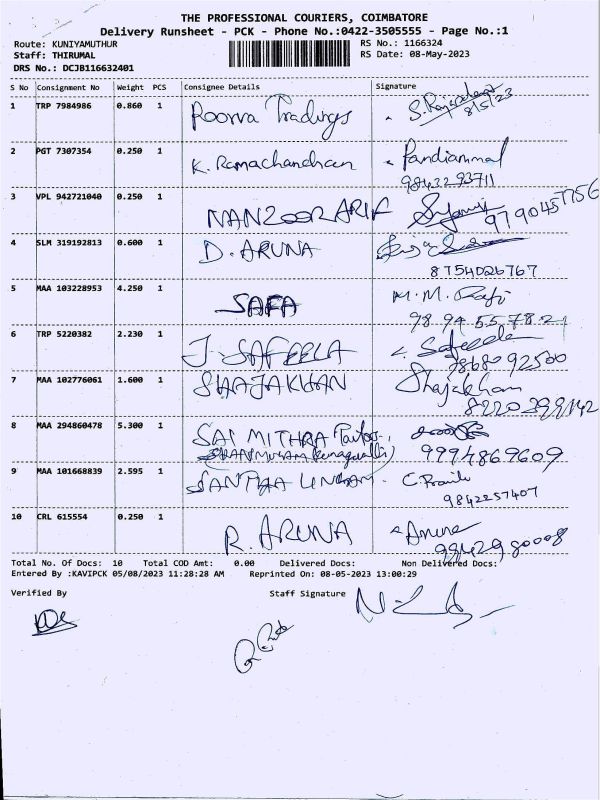 THE PROFESSIONAL COURIERS, COIMBATORE
Delivery Runsheet - PCK - Phone No.:0422-3505555 - Page No.:1
Route: KUNIYAMUTHUR RS No.: 1166324
Staff: THIRUMAL RS Date: 08-May-2023
DRS No.: DCJB116632401
S No Consignment No Weight PCS Consignee Details Signature
1 TRP 7984986 0.860 1 Poorva Tradings
8/5/23
2 PGT 7307354 0.250 1 K. Ramachandran Pandiammal
9842293711
3 VPL 942721040 0.250 1 NANZOOR ARIF
4 SLM 319192813 0.600 1 D. ARUNA
8754026767
5 MAA 103228953 4.250 1 SAFA M.M. Rafi
6 TRP 5220382 2.230 1 J. SAFEELA Safeela
7868092500
7 MAA 102776061 1.600 1 SHAJAKHAN Shajakhan
8220399142
8 MAA 294860478 5.300 1 SAI MITHRA
9994869609
9 MAA 101668839 2.595 1
9842257407
10 CRL 615554 0.250 1 R. ARUNA Aruna
Total No. Of Docs: 10 Total COD Amt: 0.00 Delivered Docs: Non Delivered Docs:
Entered By :KAVIPCK 05/08/2023 11:28:28 AM Reprinted On: 08-05-2023 13:00:29
Verified By Staff Signature